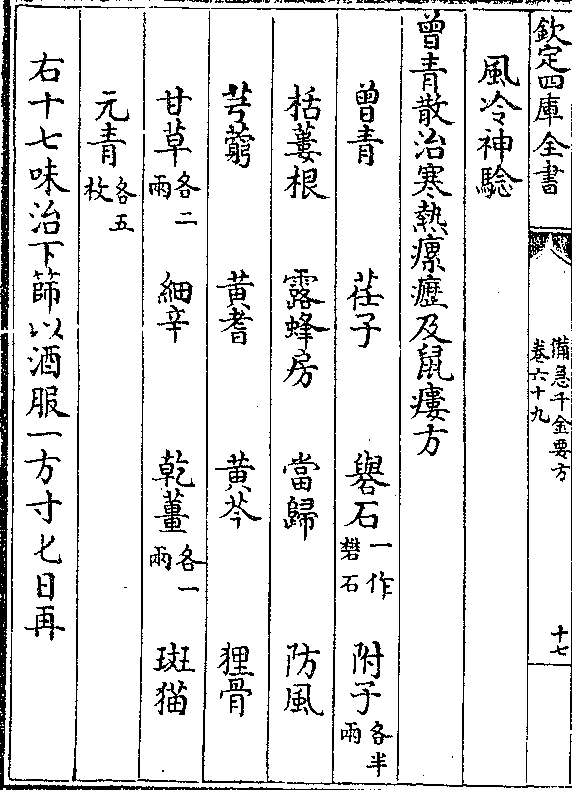 欽定四庫全書
備急千金要方
卷六十九
十七
風冷神驗
曾青散治寒熱瘰癧及鼠瘻方
曾青 荏子 礜石一作礬石 附子各半兩
栝蔞根 露蜂房 當歸 防風
芎藭 黄耆 黄芩 狸骨
甘草各二兩 細辛 乾薑各一兩 斑猫
元青各五枚
右十七味治下篩以酒服一方寸匕日再